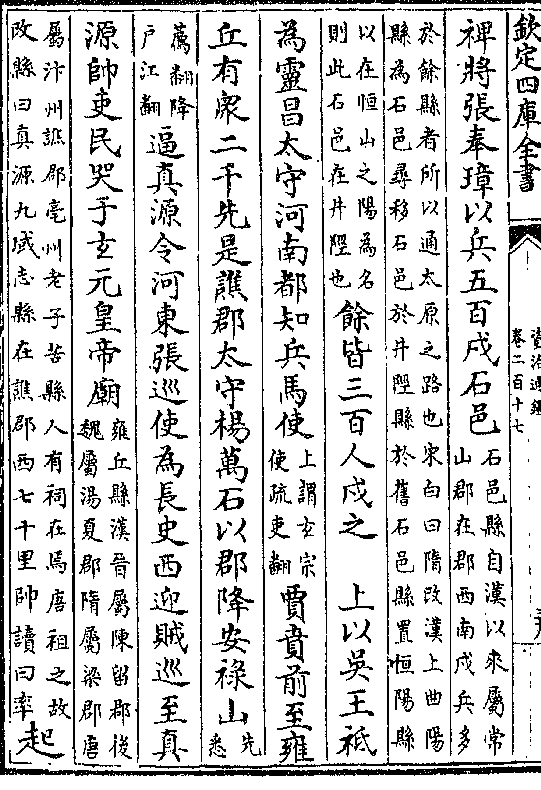 欽定四庫全書
資治通鑑
卷二百十七
裨將張奉璋以兵五百戍石邑石邑縣自漢以來屬常
山郡在郡西南戍兵多
於餘縣者所以通太原之路也宋白曰隋改漢上曲陽
縣為石邑尋移石邑於井陘縣於舊石邑縣置恒陽縣
以在恒山之陽為名
則此石邑在井陘也餘皆三百人戍之　上以吳王祗
為靈昌太守河南都知兵馬使上謂玄宗
使疏吏翻賈賁前至雍
丘有衆二千先是譙郡太守楊萬石以郡降安祿山先
悉
薦翻降
户江翻逼真源令河東張巡使為長史西迎賊巡至真
源帥吏民哭于玄元皇帝廟雍丘縣漢晉屬陳留郡後
魏屬湯夏郡隋屬梁郡唐
屬汴州譙郡亳州老子苦縣人有祠在焉唐祖之故
改縣曰真源九域志縣在譙郡西七千里帥讀曰率起